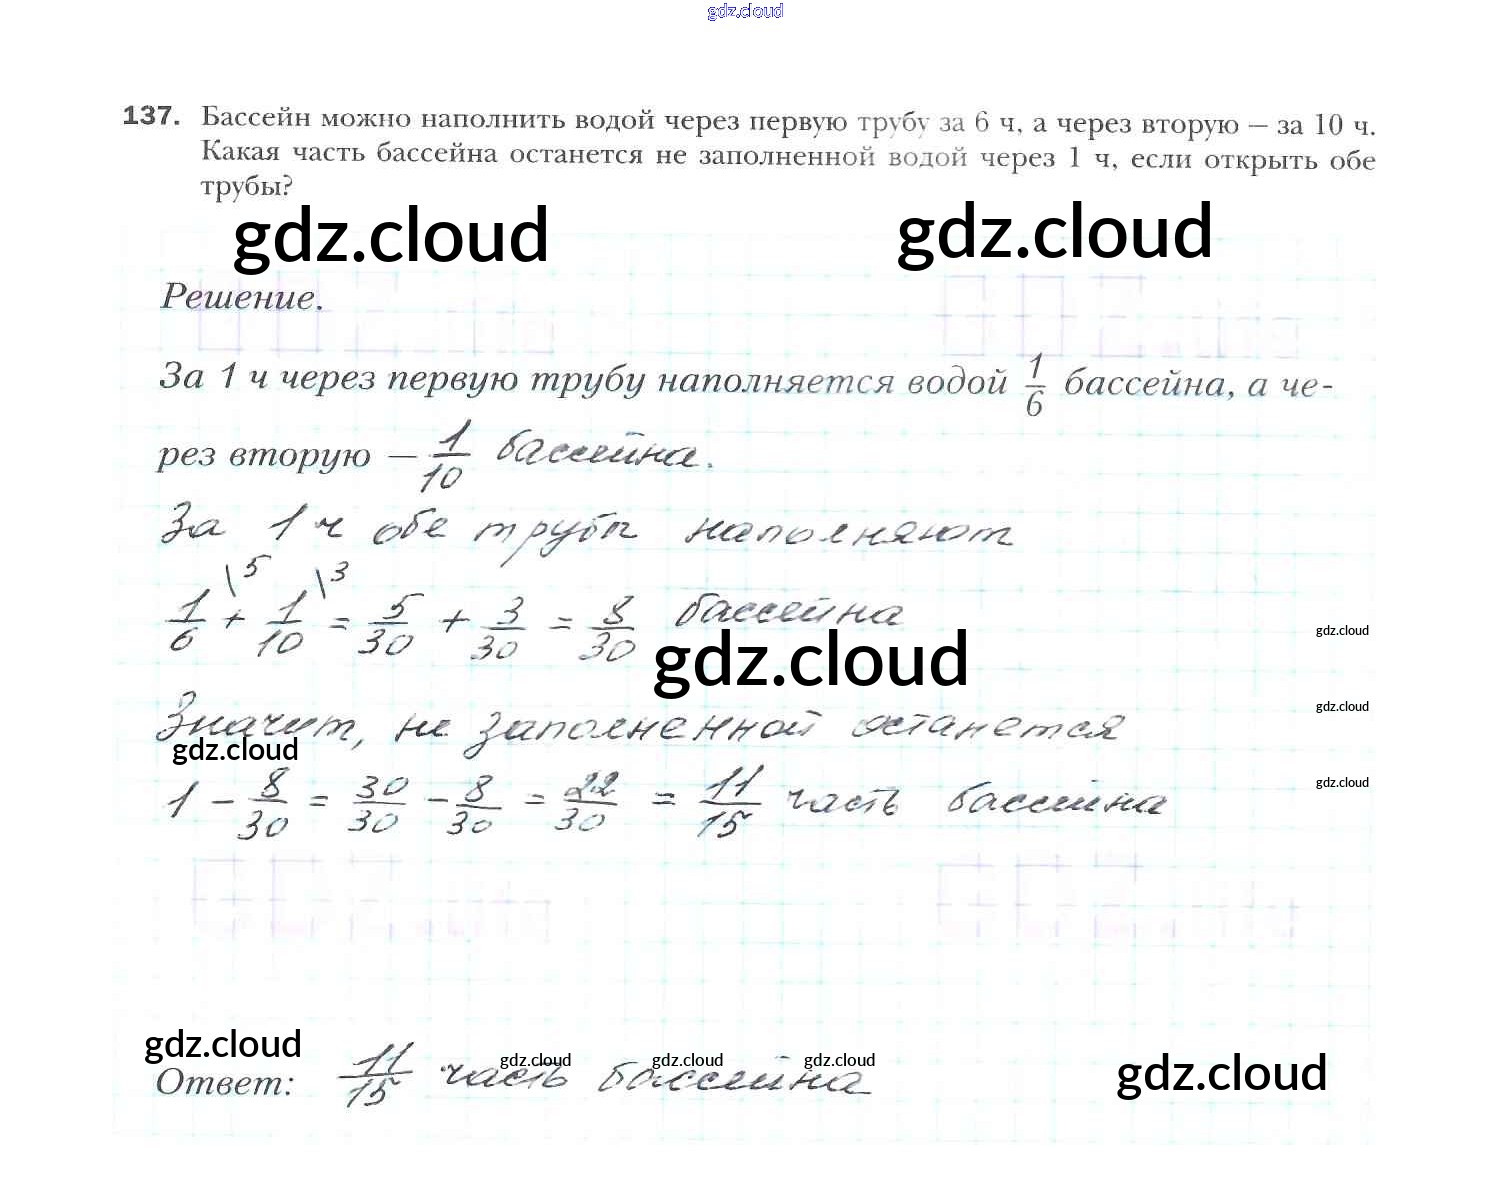 gdz.cloud
137. Бассейн можно наполнить водой через первую трубу за 6 ч, а через вторую — за 10 ч.
Какая часть бассейна останется не заполненной водой через 1 ч, если открыть обе
трубы?
gdz.cloud gdz.cloud
Решение.
За 1 ч через первую трубу наполняется водой 1/6 бассейна, а че-
рез вторую — 1/10 бассейна.
За 1 ч обе трубы наполняют
1/6 \5 + 1/10 \3 = 5/30 + 3/30 = 8/30 бассейна
gdz.cloud
gdz.cloud
Значит, не заполненной останется
gdz.cloud
gdz.cloud
1 - 8/30 = 30/30 - 8/30 = 22/30 = 11/15 часть бассейна
gdz.cloud
gdz.cloud
gdz.cloud gdz.cloud gdz.cloud
gdz.cloud
Ответ: 11/15 часть бассейна